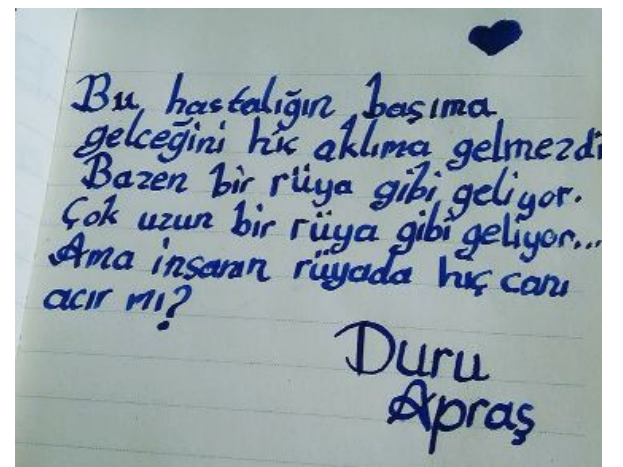 Bu hastalığın başıma
gelceğini hiç aklıma gelmezdi
Bazen bir rüya gibi geliyor.
Çok uzun bir rüya gibi geliyor...
Ama insanın rüyada hiç canı
acır mı?
Duru
Apraş